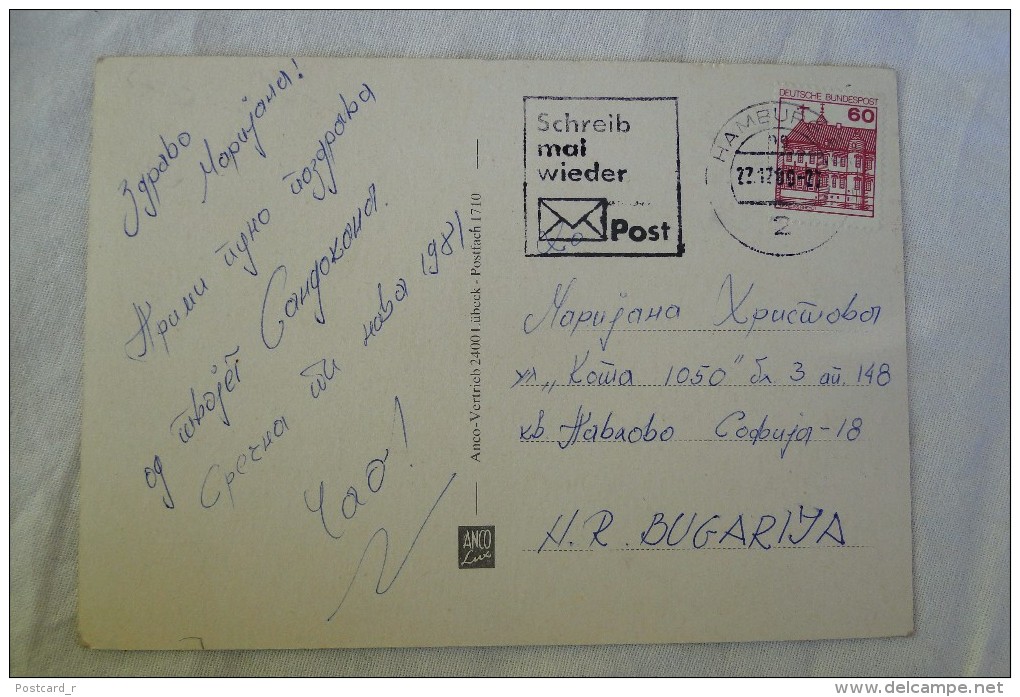 Здраво
Маријана!
Прими пуно поздрава
од твојет Сандокана.
Срећна ти нова 1981
Чао!
Anco-Vertrieb 2400 Lübeck - Postfach 1710
ANCO
Lux
Schreib
mal
wieder
Post
HAMBUR
2
DEUTSCHE BUNDESPOST
60
Маријана Христова
ул. „Кота 1050" бл. 3 ап. 148
кв. Павлово Софија-18
H.R. BUGARIJA
Postcard_r
www.delcampe.net